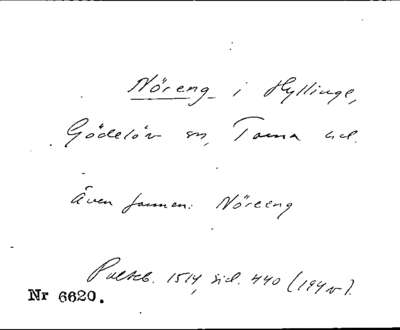 Nöreng i Hyllinge,
Gödelöv sn, Torna hd.
Även formen: Nöreeng
Palteb. 1514, sid. 440 (194 v).
Nr 6620.